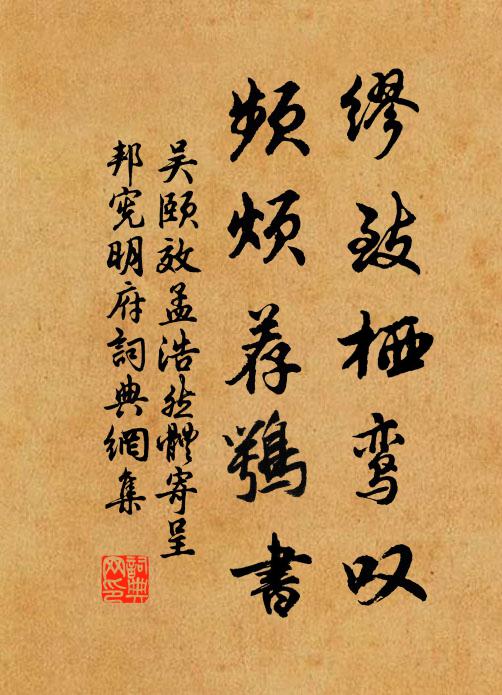 缪致栖鸾叹
频烦荐鹗书
吴颐效孟浩然體寄呈
邦宪明府詞典網集
詞典网印